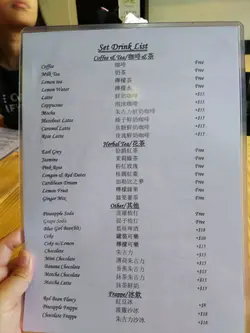 Set Drink List
Coffee & Tea/咖啡&茶
Coffee 咖啡 Free
Milk Tea 奶茶 Free
Lemon tea 檸檬茶 Free
Lemon Water 檸檬水 Free
Latte 鮮奶咖啡 +$15
Cappuccino 泡沫咖啡 +$15
Mocha 朱古力鮮奶咖啡 +$15
Hazelnut Latte 榛子鮮奶咖啡 +$15
Caramel Latte 焦糖鮮奶咖啡 +$15
Rose Latte 玫瑰鮮奶咖啡 +$15
Herbal Tea/花茶
Earl Grey 伯爵紅茶 Free
Jasmine 茉莉綠茶 Free
Pink Rose 粉紅玫瑰 Free
Longan & Red Dates 桂圓紅棗 Free
Caribbean Dream Free
Lemon Fruit Free
Ginger Mix Free
Other/其他
Pineapple Soda +$15
Grape Soda +$15
Blue Girl Beer(Btl) +$15
Coke +$15
Coke w/Lemon +$15
Chocolate 朱古力 +$15
Mint Chocolate 薄荷朱古力 +$15
Banana Chocolate 香蕉朱古力 +$15
Matcha Chocolate 抹茶朱古力 +$15
Matcha Latte 抹茶鮮奶 +$15
Frappe/冰飲
Red Bean Fleecy 紅豆冰
Pineapple Frappe 菠蘿沙冰
Chocolate Frappe 朱古力沙冰